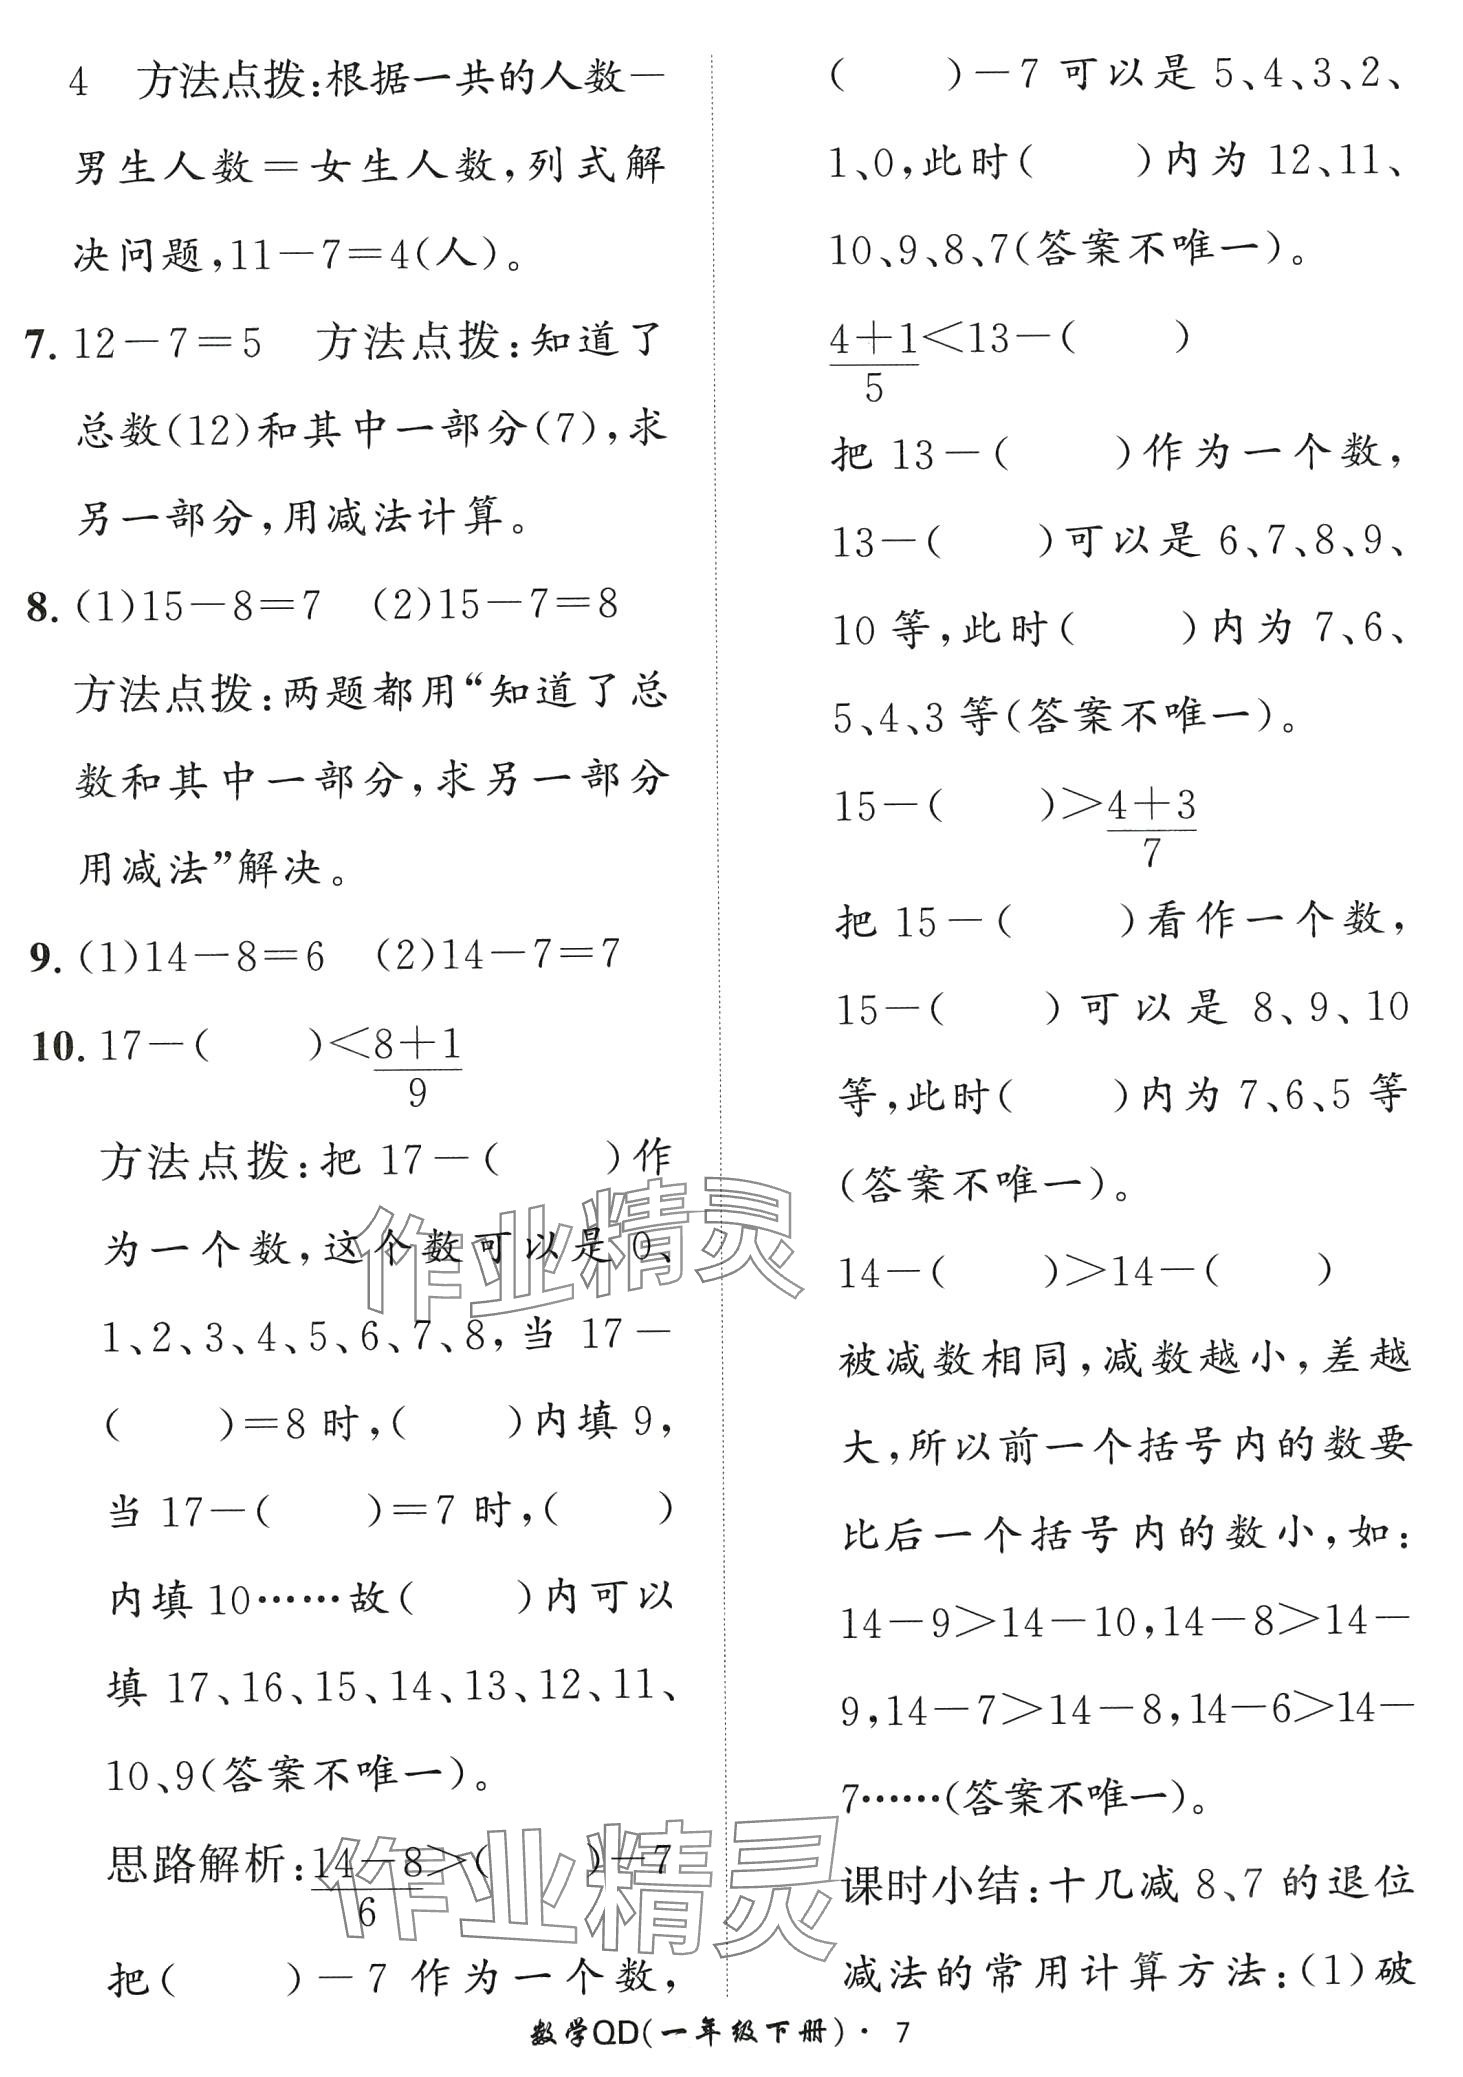 4 方法点拨:根据一共的人数-
男生人数=女生人数,列式解
决问题,11-7=4(人)。
7. 12-7=5 方法点拨:知道了
总数(12)和其中一部分(7),求
另一部分,用减法计算。
8. (1)15-8=7 (2)15-7=8
方法点拨:两题都用“知道了总
数和其中一部分,求另一部分
用减法”解决。
9. (1)14-8=6 (2)14-7=7
10. 17-( )<8+1
9
方法点拨:把 17-( )作
为一个数,这个数可以是 0、
1、2、3、4、5、6、7、8,当 17-
( )=8 时,( )内填 9,
当 17-( )=7 时,( )
内填 10……故( )内可以
填 17、16、15、14、13、12、11、
10、9(答案不唯一)。
思路解析:14-8>( )-7
6
把( )-7 作为一个数,
( )-7 可以是 5、4、3、2、
1、0,此时( )内为 12、11、
10、9、8、7(答案不唯一)。
4+1<13-( )
5
把 13-( )作为一个数,
13-( )可以是 6、7、8、9、
10 等,此时( )内为 7、6、
5、4、3 等(答案不唯一)。
15-( )>4+3
7
把 15-( )看作一个数,
15-( )可以是 8、9、10
等,此时( )内为 7、6、5 等
(答案不唯一)。
14-( )>14-( )
被减数相同,减数越小,差越
大,所以前一个括号内的数要
比后一个括号内的数小,如:
14-9>14-10,14-8>14-
9,14-7>14-8,14-6>14-
7……(答案不唯一)。
课时小结:十几减 8、7 的退位
减法的常用计算方法:(1)破
数学QD(一年级下册)· 7
作业精灵
作业精灵